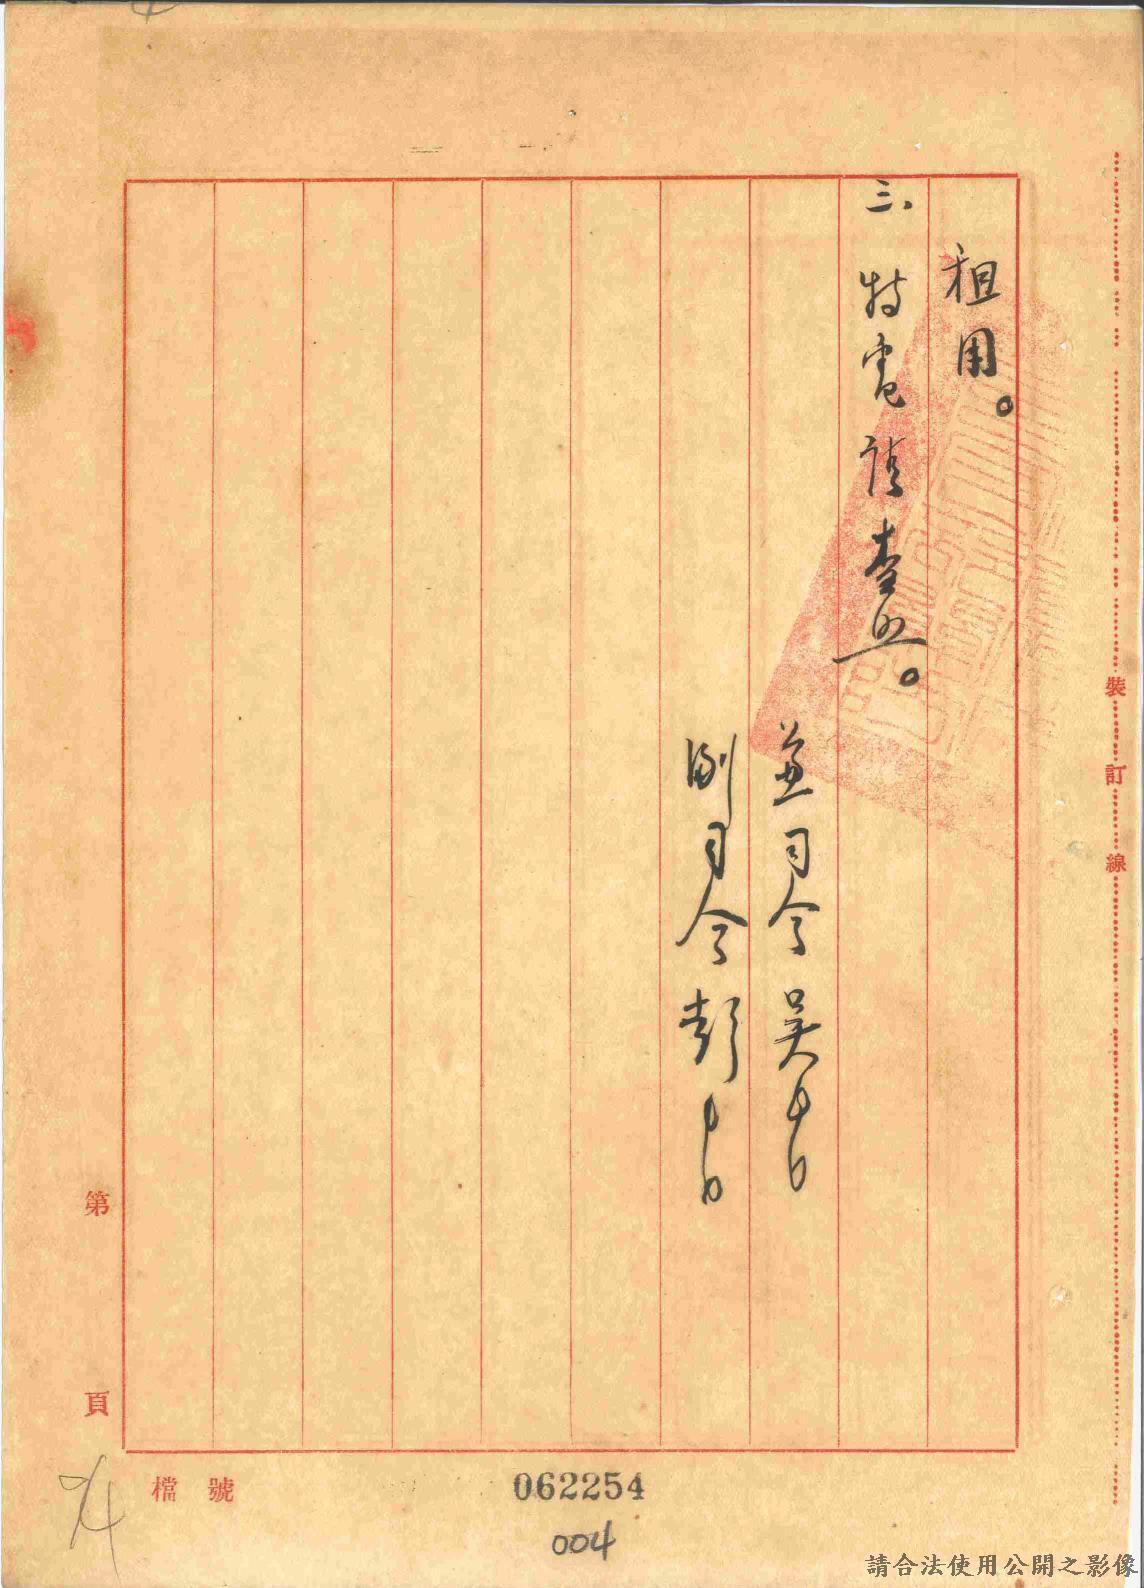 租用。
三、特電請查照。
兼司令吳
副司令彭
裝訂線
第 頁
檔號
062254
004
請合法使用公開之影像